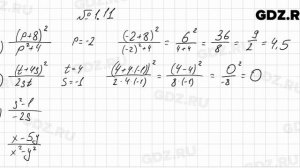 GDZ.RU
№ 1.11
) (p+8)²/p²+4 p=-2 (-2+8)²/(-2)²+4 = 6²/4+4 = 36/8 = 9/2 = 4.5
) (t+4s)²/2st t=4 s=-1 (4+4·(-1))²/2·4·(-1) = (4-4)²/8·(-1) = 0²/-8 = 0
) s²-1/-2s
x-5y/x²-y²